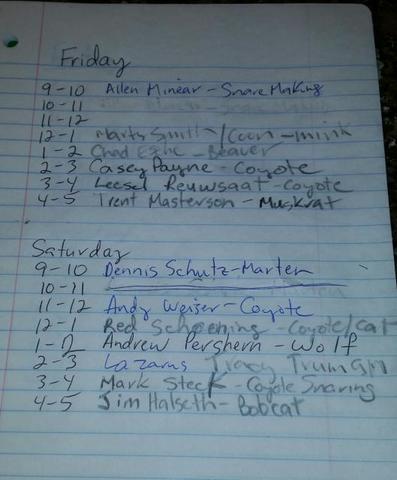 Friday
9-10 Allen Minear - Snare Making
10-11
11-12
12-1 Marty Smith /Coon - mink
1-2 Chad - Beaver
2-3 Casey Payne - Coyote
3-4 Leesel Reuwsaat - Coyote
4-5 Trent Masterson - Muskrat
Saturday
9-10 Dennis Schutz - Marten
10-11
11-12 Andy Weiser - Coyote
12-1 Red Schoening - Coyote/cat
1-2 Andrew Pershern - Wolf
2-3 Lazarus Tracy Truman
3-4 Mark Steck - Coyote Snaring
4-5 Jim Halseth - Bobcat